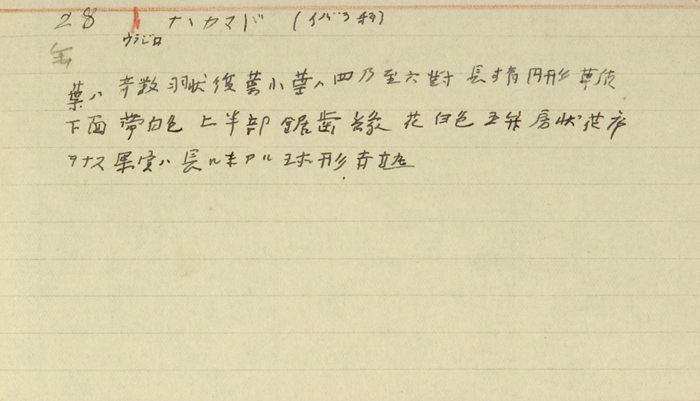 28 ナハカマド (イバラ科)
ウラジロ
葉ハ奇数羽状複葉小葉ハ四乃至六対長楕円形葉質
下面帯白色上半部鋸歯縁花白色五弁房状花序
ヲナス果実ハ長ルキアル球形直立